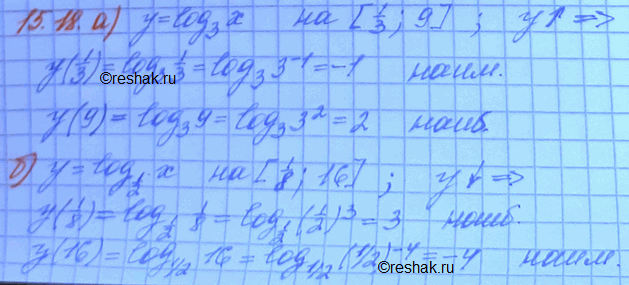 15.18. а) y = log₃ x на [1/3; 9]; y↑ =>
y(1/3) = log₃ 1/3 = log₃ 3⁻¹ = -1 наим.
©reshak.ru
y(9) = log₃ 9 = log₃ 3² = 2 наиб.
б) y = log_{1/2} x на [1/8; 16]; y↓ =>
y(1/8) = log_{1/2} 1/8 = log_{1/2} (1/2)³ = 3 наиб.
y(16) = log_{1/2} 16 = log_{1/2} (1/2)⁻⁴ = -4 наим.
©reshak.ru